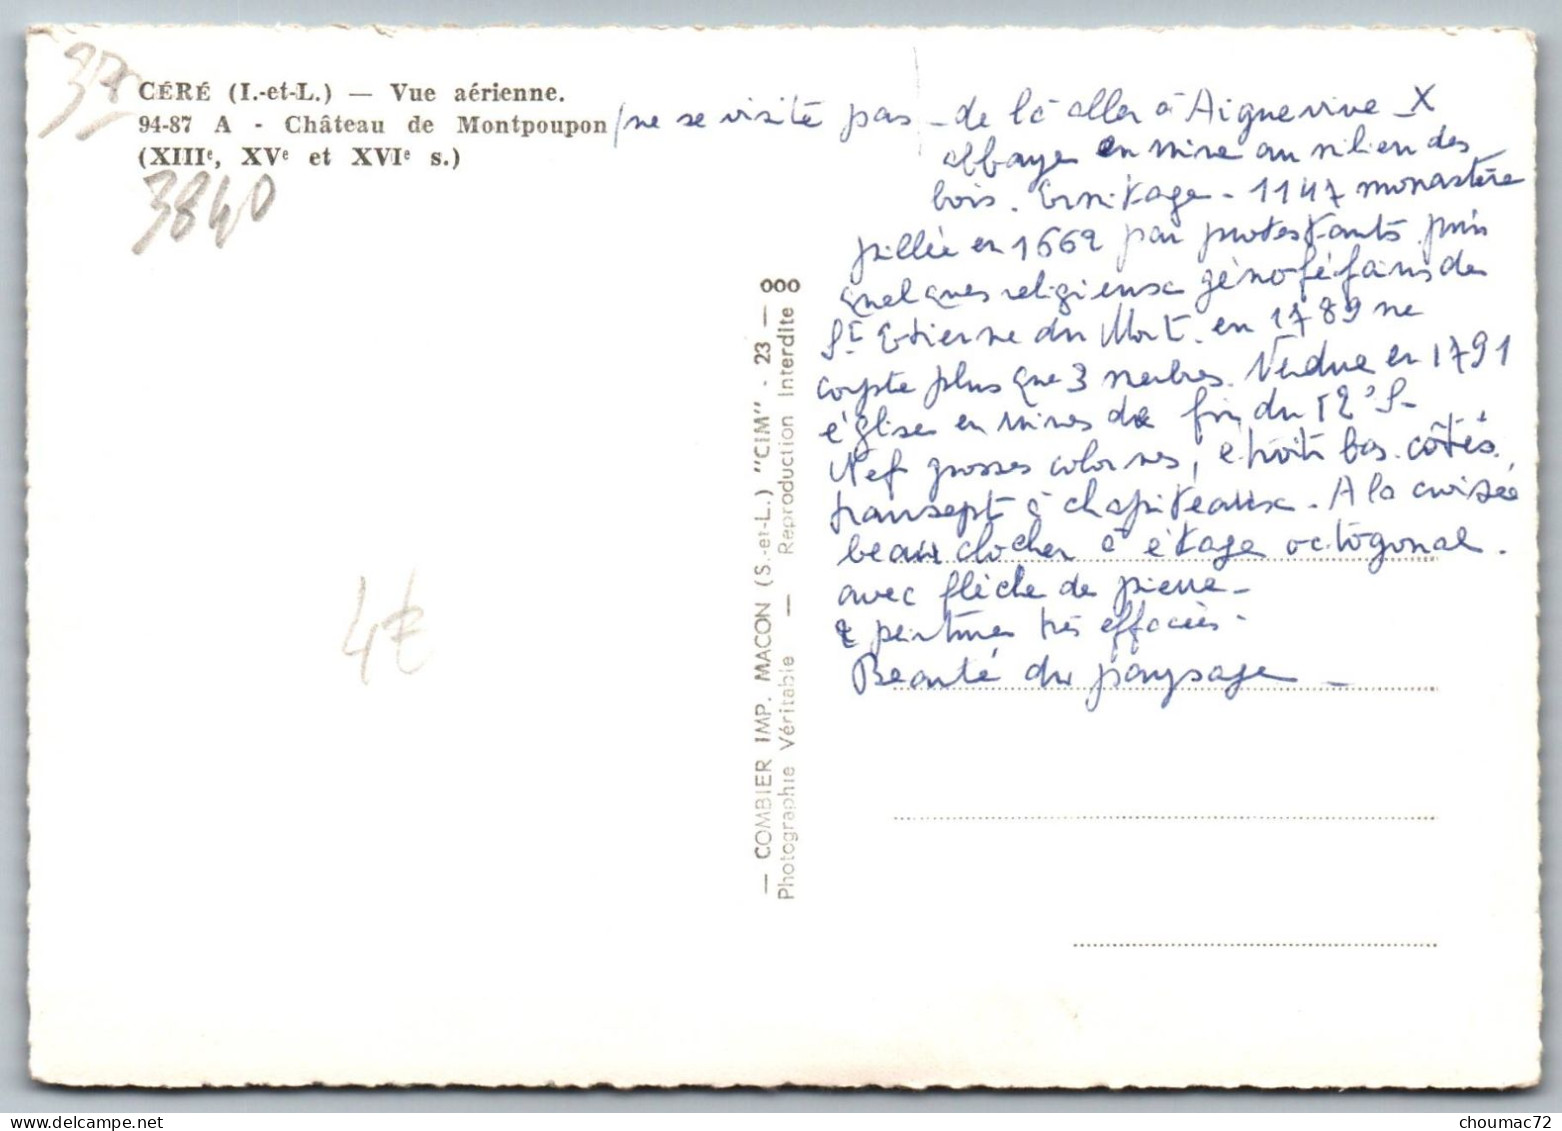 37
CÉRÉ (I.-et-L.) — Vue aérienne.
94-87 A - Château de Montpoupon
(XIIIe, XVe et XVIe s.)
3840
4€
— COMBIER IMP. MACON (S.-et-L.) "CIM" - 23 — 000
Photographie Véritable — Reproduction Interdite
/ne se visite pas - de là aller à Aiguevive X
abbaye en ruine au milieu des
bois. Ermitage - 1147 monastère
pillée en 1662 par protestants puis
quelques religieux génoféfains de
St Etienne du Mont. en 1789 ne
compte plus que 3 membres. Vendue en 1791
église en ruines de fin du 12e S-
Nef grosses colonnes, étroits bas-côtés
transept à chapiteaux. A la croisée
beau clocher à étage octogonal.
avec flèche de pierre-
& peintures très effacées.
Beauté du paysage -
choumac72